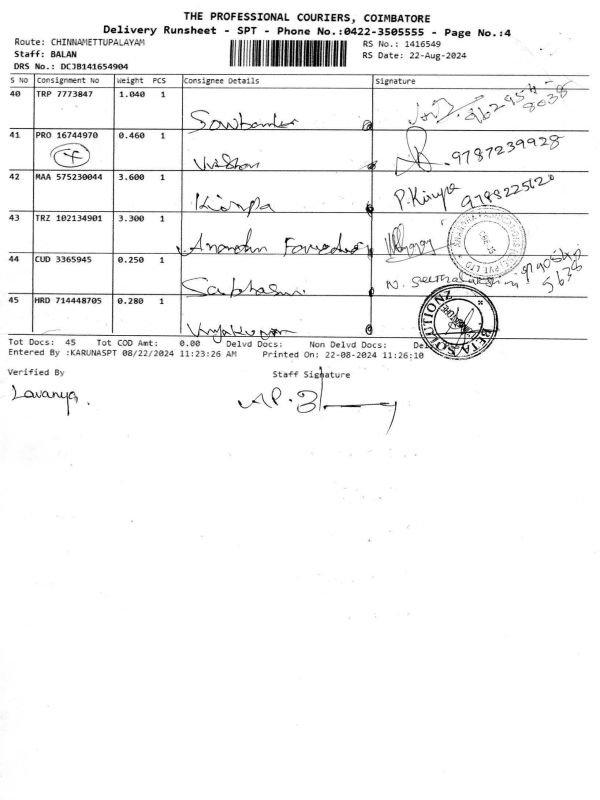 THE PROFESSIONAL COURIERS, COIMBATORE
Delivery Runsheet - SPT - Phone No.:0422-3505555 - Page No.:4
Route: CHINNAMETTUPALAYAM RS No.: 1416549
Staff: BALAN RS Date: 22-Aug-2024
DRS No.: DCJB141654904
S No Consignment No Weight PCS Consignee Details Signature
40 TRP 7773847 1.040 1
41 PRO 16744970 0.460 1
9787239928
42 MAA 575230044 3.600 1
Kirupa P.Kirupa
43 TRZ 102134901 3.300 1
44 CUD 3365945 0.250 1
45 HRD 714448705 0.280 1
BETA SOLUTIONZ
Tot Docs: 45 Tot COD Amt: 0.00 Delvd Docs: Non Delvd Docs:
Entered By :KARUNASPT 08/22/2024 11:23:26 AM Printed On: 22-08-2024 11:26:10
Verified By Staff Signature
Lavanya.